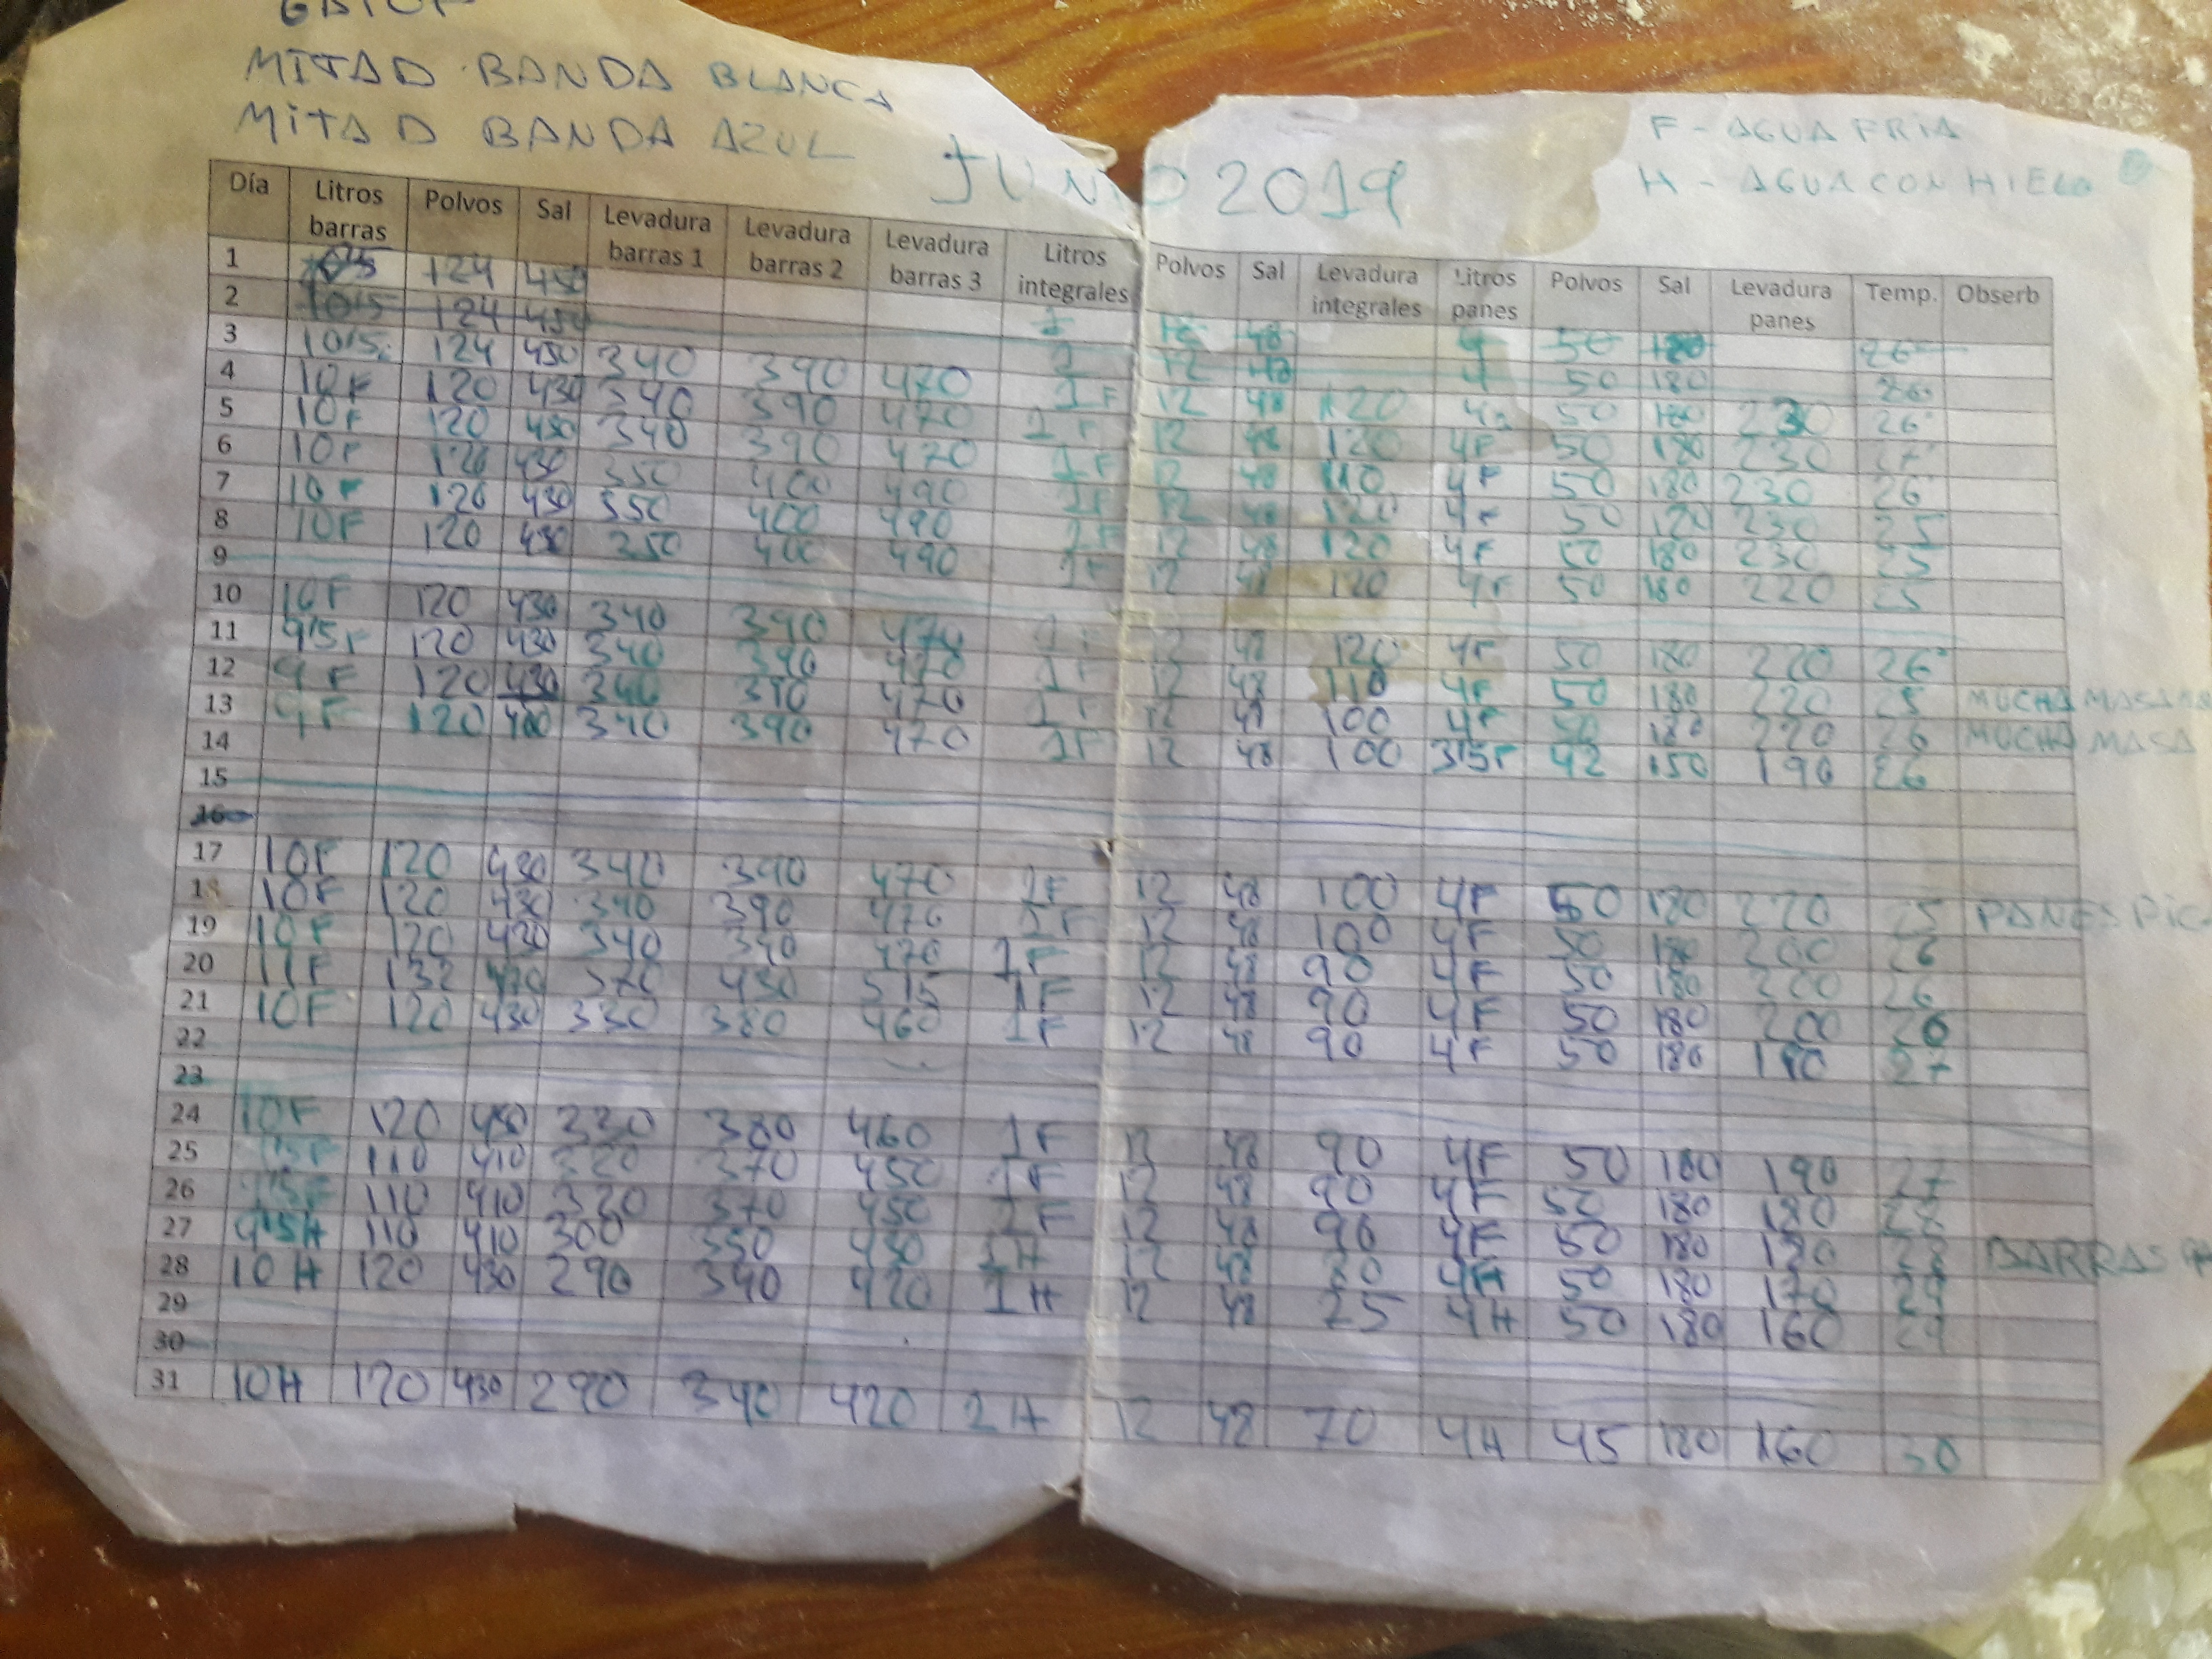 MITAD BANDA BLANCA
MITAD BANDA AZUL
JUNIO 2019
F - AGUA FRIA
H - AGUA CON HIELO
Día Litros barras Polvos Sal Levadura barras 1 Levadura barras 2 Levadura barras 3 Litros integrales Polvos Sal Levadura integrales Litros panes Polvos Sal Levadura panes Temp. Obserb
1 124 450 1 12 48 4 50 180 26
2 10'5 124 450 1 12 48 4 50 180 26
3 10'5 124 450 340 390 470 1F 12 48 120 50 180 230 26
4 10F 120 430 340 390 470 1F 12 48 120 4F 50 180 230 27
5 10F 120 430 340 390 470 1F 12 48 110 4F 50 180 230 26
6 10F 120 430 350 400 490 1F 12 48 120 4F 50 180 230 25
7 10F 120 430 350 400 490 1F 12 48 120 4F 50 180 230 25
8 10F 120 430 350 400 490 1F 12 48 120 4F 50 180 220 25
9
10 10F 120 430 340 390 470 1F 12 48 120 4F 50 180 220 26
11 9'5F 120 430 340 390 470 1F 12 48 110 4F 50 180 220 25 MUCHA MASA
12 9F 120 430 340 390 470 1F 12 48 100 4F 50 180 220 26 MUCHA MASA
13 9F 120 400 340 390 470 1F 12 48 100 3'5F 42 150 190 26
14
15
16
17 10F 120 430 340 390 470 1F 12 48 100 4F 50 180 220 25 PANES PIC
18 10F 120 430 340 390 470 1F 12 48 100 4F 50 180 200 26
19 10F 120 430 340 390 470 1F 12 48 90 4F 50 180 200 26
20 11F 132 470 370 430 515 1F 12 48 90 4F 50 180 200 26
21 10F 120 430 330 380 460 1F 12 48 90 4F 50 180 190 27
22
23
24 10F 120 430 330 380 460 1F 12 48 90 4F 50 180 190 27
25 9'5F 110 410 320 370 450 1F 12 48 90 4F 50 180 180 28
26 9'5F 110 410 320 370 450 1F 12 48 90 4F 50 180 180 28 BARRAS
27 9'5H 110 410 300 350 430 1H 12 48 80 4H 50 180 170 29
28 10H 120 430 290 340 420 1H 12 48 75 4H 50 180 160 29
29
30
31 10H 120 430 290 340 420 1H 12 48 70 4H 45 180 160 30